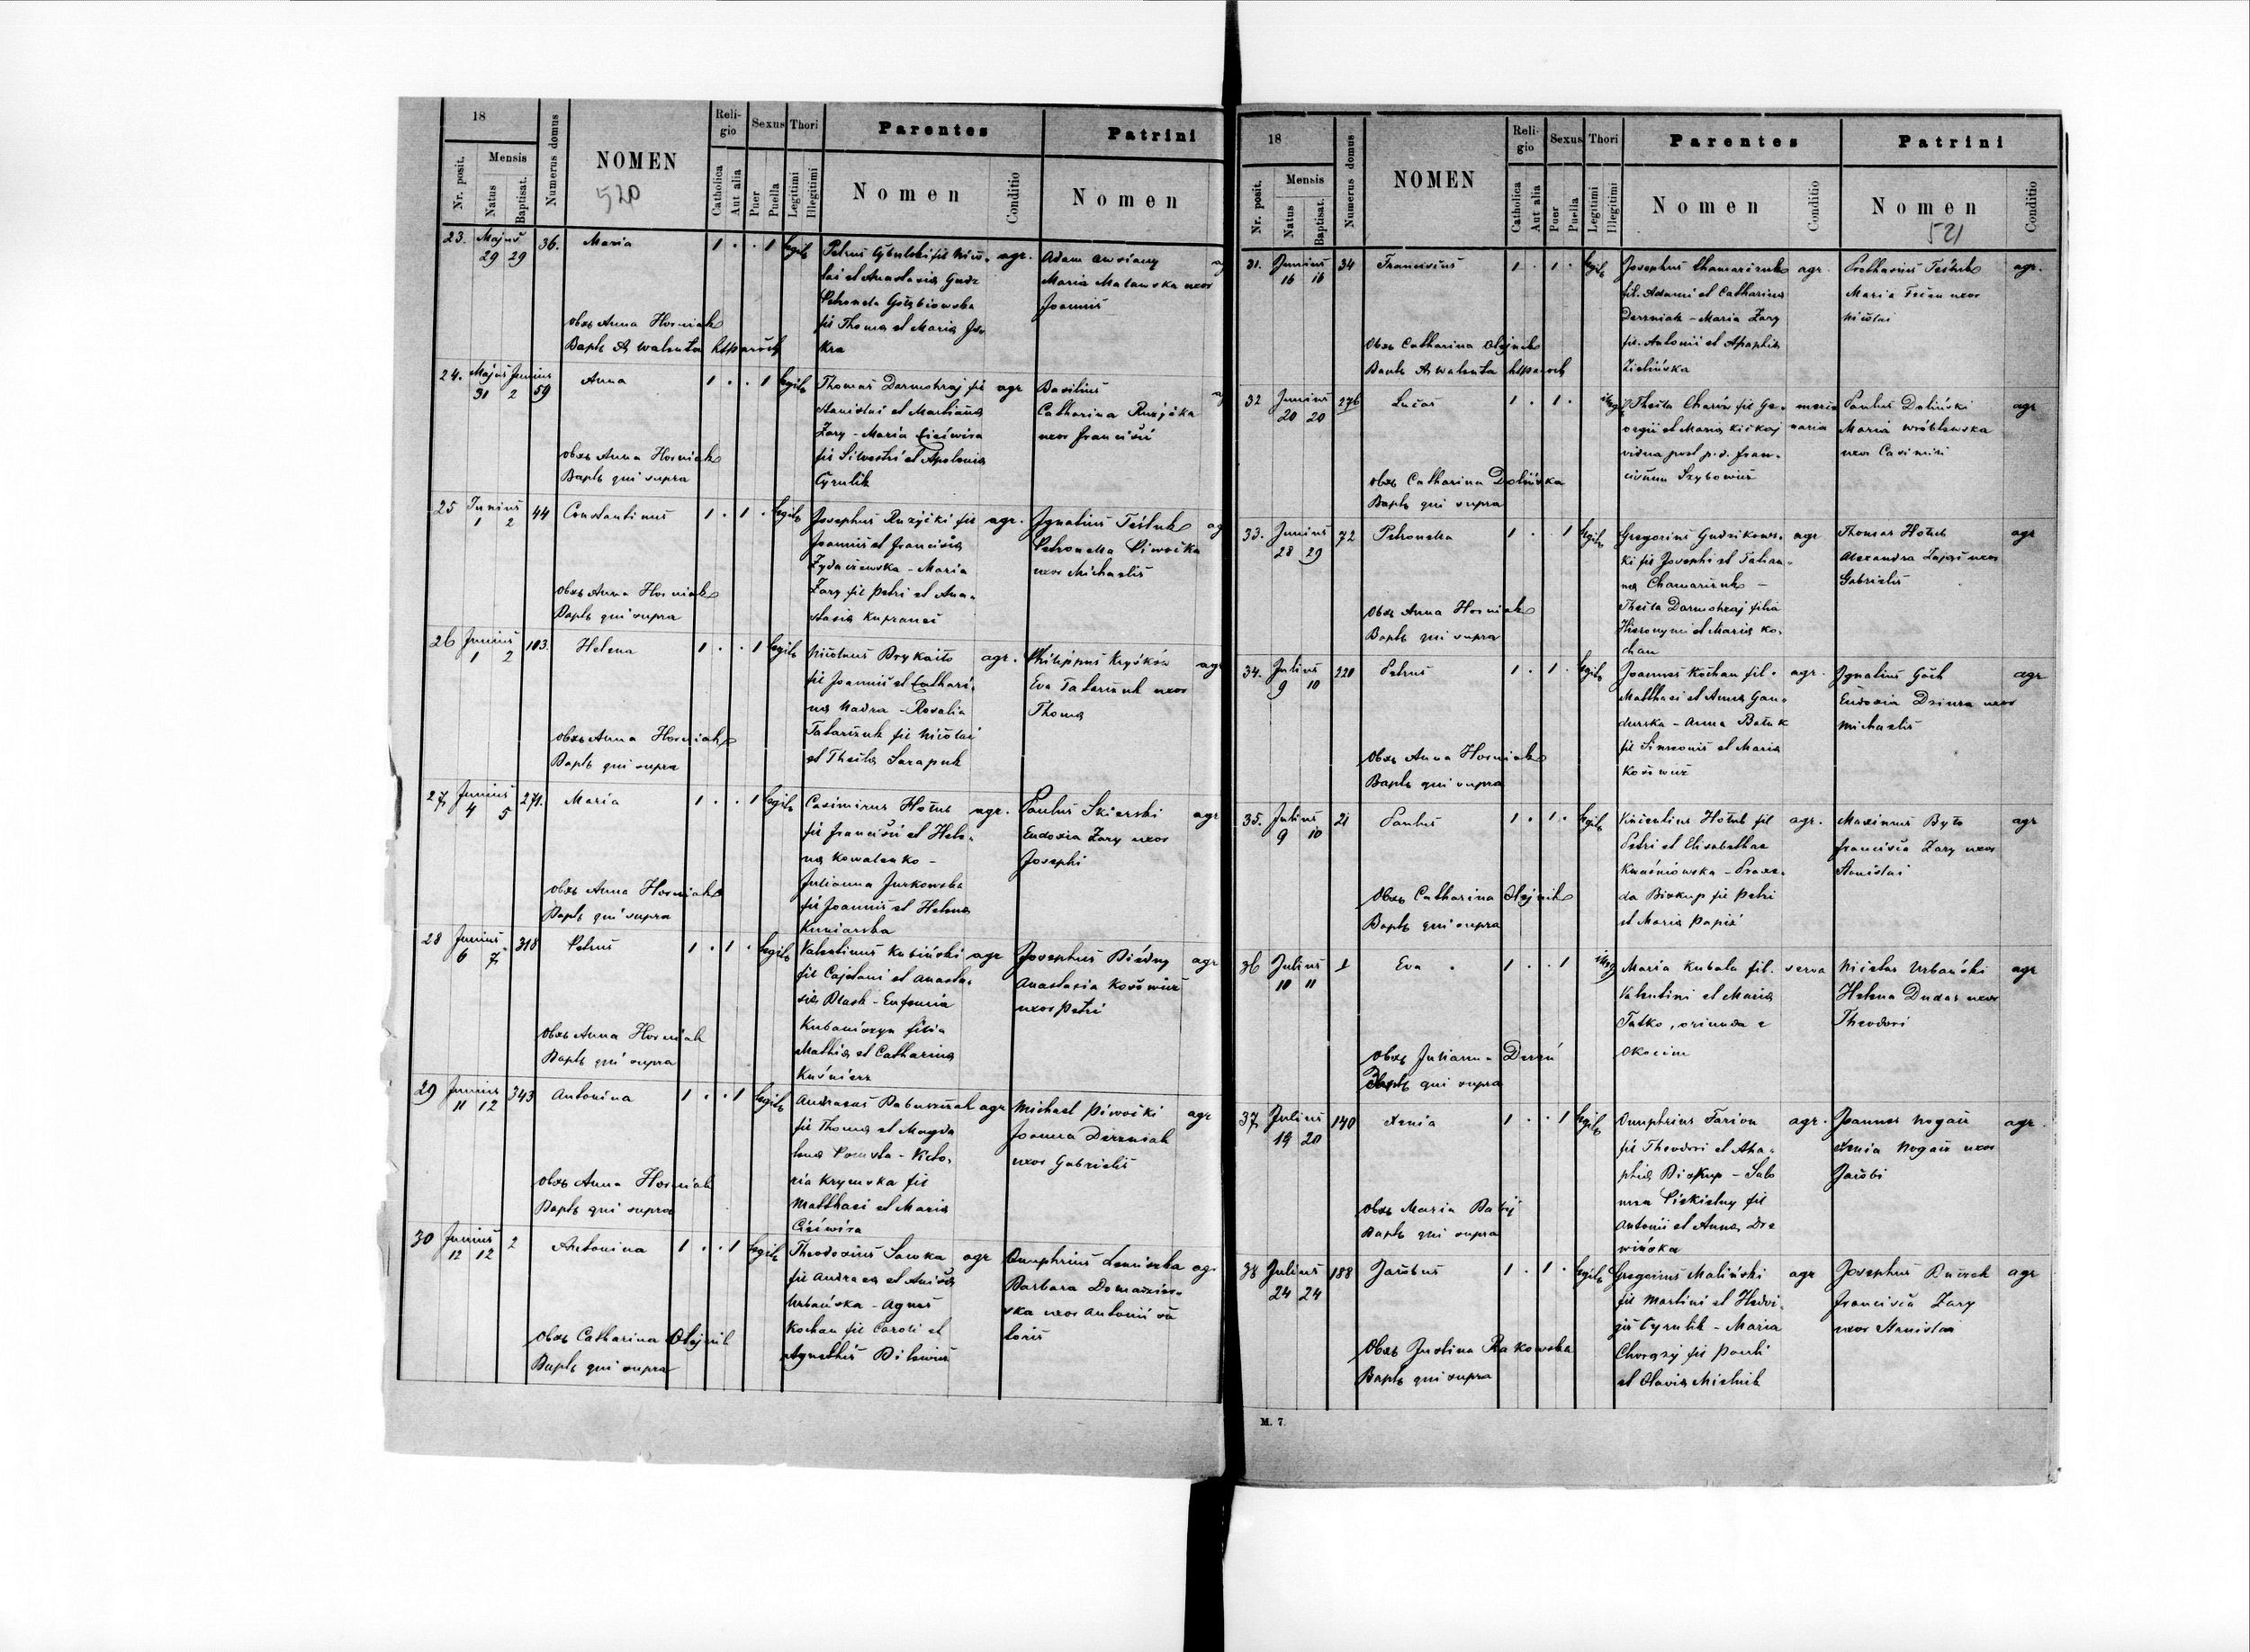 18
Nr. posit.
Mensis
Natus
Baptisat.
Numerus domus
NOMEN
520
Religio
Catholica
Aut alia
Sexus
Puer
Puella
Thori
Legitimi
Illegitimi
Parentes
Nomen
Conditio
Patrini
Nomen
23. Majus 29 29 36. Maria 1 . . 1 legit
fil Thoma et Maria
agr. Adam
Maria Malawska uxor
Joannis
Obst Anna Horniak
Bapt A Walenta
24. Majus 31 Junius 2 59 Anna 1 . . 1 legit
Thomas Darmohraj fil
Stanislai et Marianna
Zary - Maria Cisiwira
fil Silvestri et Apolonia
Cyrulik
agr Basilius
Catharina Ruzycka
uxor Francisci
Obst Anna Horniak
Bapt qui supra
25 Junius 1 2 44 Constantinus 1 . 1 . legit
Josephus Ruzycki fil
Joannis et Francisca
Zydaczewska - Maria
Zary fil Petri et Ana-
stasia
agr. Ignatius Tesluk ag
Petronella Piwocka
uxor Michaelis
Obst Anna Horniak
Bapt qui supra
26 Junius 1 2 103. Helena 1 . . 1 legit
Nicolaus Brykajlo
fil Joannis et Cathari-
na Nadra - Rosalia
Tatarczuk fil Nicolai
et Thecla Sarapuk
agr. Philippus agr
Eva Tatarczuk uxor
Thoma
Obst Anna Horniak
Bapt qui supra
27 Junius 4 5 271. Maria 1 . . 1 legit
Casimirus Holub
fil Francisci et Hele-
na Kowalenko -
Julianna Jurkowska
fil Joannis et Helena
Kuniarska
agr. Paulus Skierski agr
Eudoxia Zary uxor
Josephi
Obst Anna Horniak
Bapt qui supra
28 Junius 6 7 318 Petrus 1 . 1 . legit
Valentinus Kubinski
fil Cajetani et Anasta-
sia Blask - Eufemia
filia
Mathia et Catharina
Kusnierz
agr Josephus Biedny agr
Anastasia Kosowicz
uxor Petri
Obst Anna Horniak
Bapt qui supra
29 Junius 11 12 343 Antonina 1 . . 1 legit
Andreas
fil Thoma et Magda
lena - Victo-
ria Krymska fil
Matthaei et Maria
Cisiwira
agr Michael Piwocki agr
Joanna Derzniak
uxor Gabrielis
Obst Anna Horniak
Bapt qui supra
30 Junius 12 12 2 Antonina 1 . . 1 legit
Theodosius Sawka
fil Andrea et Anisia
Urbanska - Agnes
Kochan fil Caroli et
Agnethis Bilewicz
agr Onuphrius agr
Barbara
ska uxor Antonii
Obst Catharina Olejnik
Bapt qui supra
18
Nr. posit.
Mensis
Natus
Baptisat.
Numerus domus
NOMEN
Religio
Catholica
Aut alia
Sexus
Puer
Puella
Thori
Legitimi
Illegitimi
Parentes
Nomen
Conditio
Patrini
Nomen
Conditio
521
31. Junius 16 16 34 Franciscus 1 . 1 . legit
Josephus Chamarczuk
fil. Adami et Catharina
Derzniak - Maria Zary
fil. Antonii et Apaphia
Zielinska
agr. Prothasius Tesluk agr.
Maria uxor
Nicolai
Obst Catharina Olejnik
Bapt A Walenta
32 Junius 20 20 276 Lucas 1 . 1 . illegit
Thecla Charów fil Ge-
orgii et Maria Kickaj
vidua post p. d. Fran-
ciscum Szybowicz
Paulus Dolinski agr
Maria Wróblewska
uxor Casimiri
Obst Catharina Dolinska
Bapt qui supra
33. Junius 28 29 72 Petronella 1 . . 1 legit
Gregorius Gudzikows-
ki fil Josephi et Tatian-
na Chamarczuk -
Thecla Darmohraj filia
Hieronymi et Maria Ko-
chan
agr Thomas Holub agr
Alexandra Zajac uxor
Gabrielis
Obst Anna Horniak
Bapt qui supra
34. Julius 9 10 220 Petrus 1 . 1 . legit
Joannes Kochan fil.
Matthaei et Anna Gan-
durska - Anna Batuk
fil Simeonis et Maria
Kosowicz
agr. Ignatius Goch agr
Eudoxia Dziura uxor
Michaelis
Obst Anna Horniak
Bapt qui supra
35. Julius 9 10 21 Paulus 1 . 1 . legit
Vincentius Holub fil
Petri et Elisabethae
Kwasniowska - Praxe-
da Biskup fil Petri
et Maria Papiz
agr. Maximus Bylo agr
Francisca Zary uxor
Stanislai
Obst Catharina Olejnik
Bapt qui supra
36 Julius 10 11 1 Eva . 1 . . 1 illeg
Maria Kubala fil.
Valentini et Maria
Tatko, oriunda e
Okocim
serva Nicetas Urbanski agr
Helena Dudas uxor
Theodori
Obst Julianna
Bapt qui supra
37 Julius 19 20 140 Xenia 1 . . 1 legit
Onuphrius Farion
fil Theodori et Aha-
phia Biskup - Salo
mea fil
Antonii et Anna Dre
winska
agr. Joannes Nogacz agr.
Xenia Nogacz uxor
Jacobi
Obst Maria Babij
Bapt qui supra
38 Julius 24 24 188 Jacobus 1 . 1 . legit
Gregorius Malinski
fil Martini et Hedvi-
gis Cyrulik - Maria
Chorazy fil Pauli
et Mielnik
agr Josephus Buczek agr
Francisca Zary
uxor Stanislai
Obst Justina Rakowska
Bapt qui supra
M. 7.